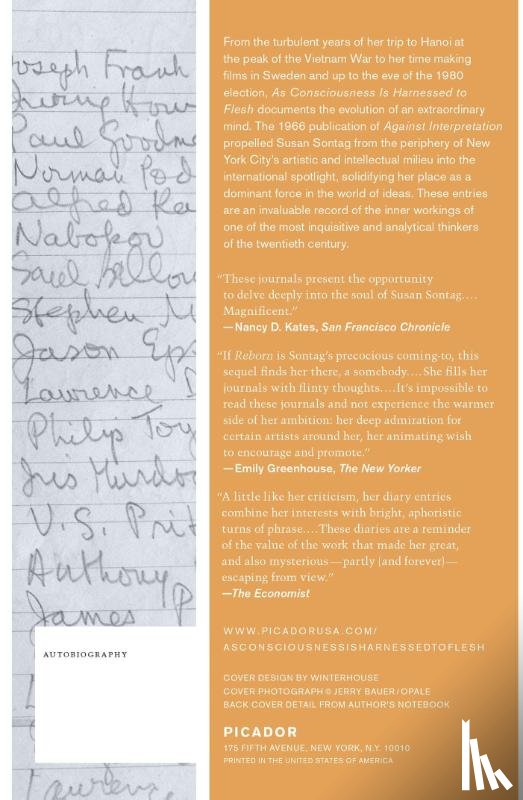 Joseph Frank
Irving How
Paul Goodm
Norman Pod
Alfred Ka
Nabokov
Saul Bellow
Stephen
Jason Eps
Lawrence
Philip Toy
Iris Murdoc
V.S. Prit
Anthony P
James
AUTOBIOGRAPHY
Lawrence
From the turbulent years of her trip to Hanoi at
the peak of the Vietnam War to her time making
films in Sweden and up to the eve of the 1980
election, As Consciousness Is Harnessed to
Flesh documents the evolution of an extraordinary
mind. The 1966 publication of Against Interpretation
propelled Susan Sontag from the periphery of New
York City's artistic and intellectual milieu into the
international spotlight, solidifying her place as a
dominant force in the world of ideas. These entries
are an invaluable record of the inner workings of
one of the most inquisitive and analytical thinkers
of the twentieth century.
“These journals present the opportunity
to delve deeply into the soul of Susan Sontag....
Magnificent.”
—Nancy D. Kates, San Francisco Chronicle
“If Reborn is Sontag's precocious coming-to, this
sequel finds her there, a somebody....She fills her
journals with flinty thoughts....It's impossible to
read these journals and not experience the warmer
side of her ambition: her deep admiration for
certain artists around her, her animating wish
to encourage and promote.”
—Emily Greenhouse, The New Yorker
“A little like her criticism, her diary entries
combine her interests with bright, aphoristic
turns of phrase....These diaries are a reminder
of the value of the work that made her great,
and also mysterious—partly (and forever)—
escaping from view.”
—The Economist
WWW.PICADORUSA.COM/
ASCONSCIOUSNESSISHARNESSEDTOFLESH
COVER DESIGN BY WINTERHOUSE
COVER PHOTOGRAPH © JERRY BAUER/OPALE
BACK COVER DETAIL FROM AUTHOR'S NOTEBOOK
PICADOR
175 FIFTH AVENUE, NEW YORK, N.Y. 10010
PRINTED IN THE UNITED STATES OF AMERICA